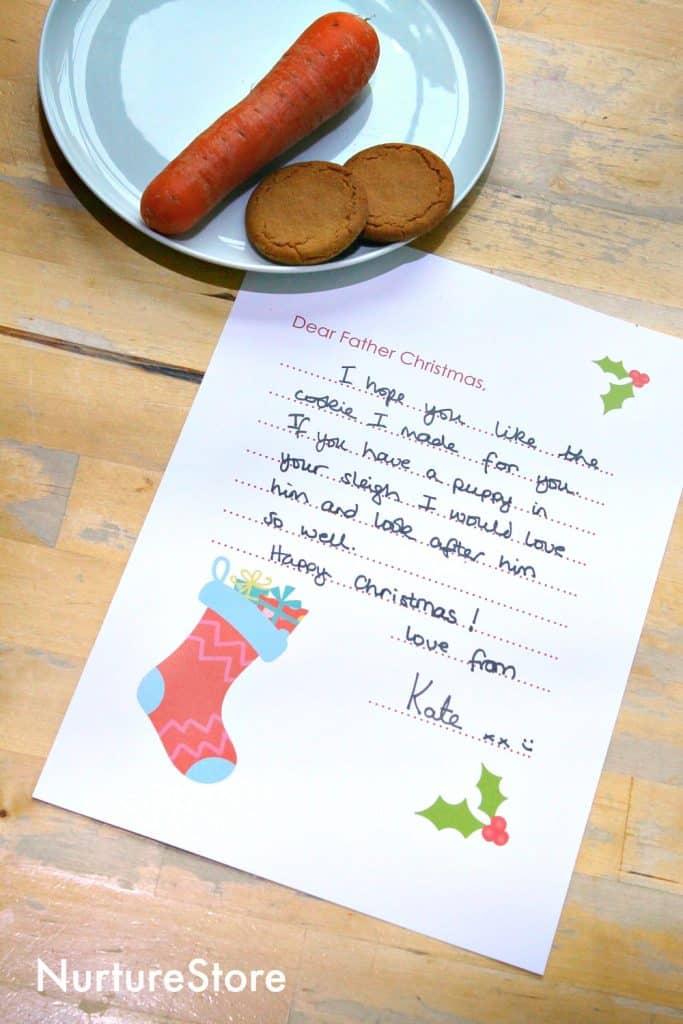 Dear Father Christmas,
I hope you like the
cookie I made for you.
If you have a puppy in
your sleigh I would love
him and look after him
so well.
Happy Christmas!
love from
Kate xx :)
NurtureStore